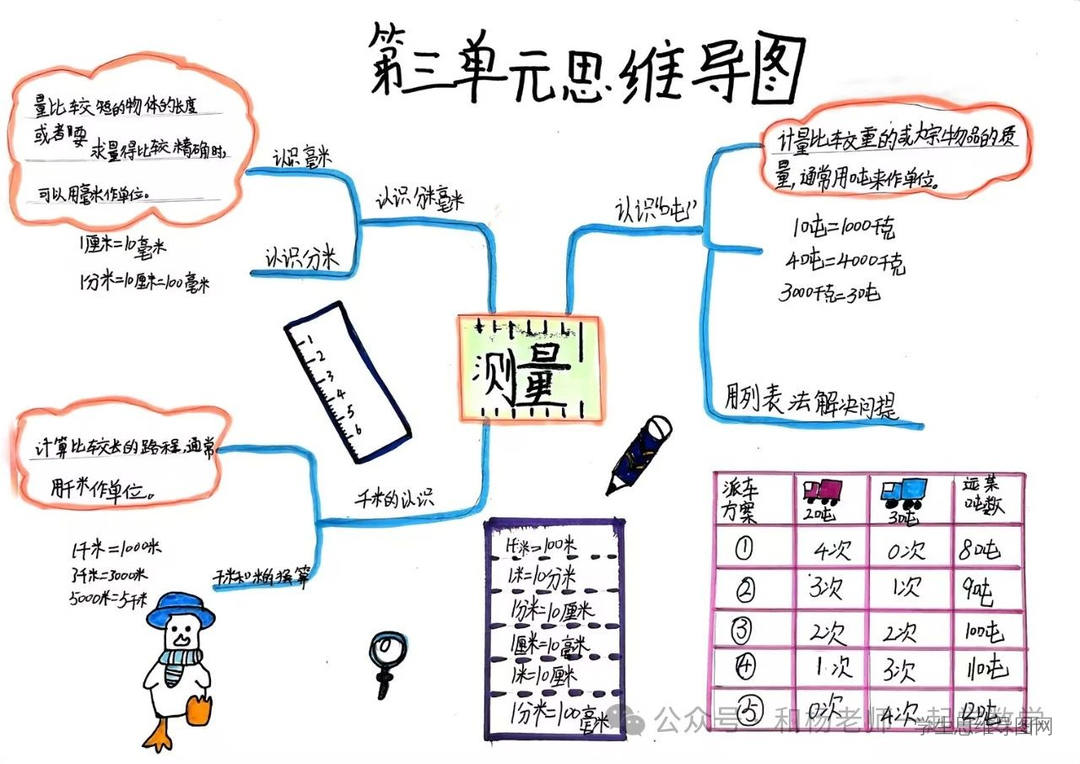 第三单元思维导图
量比较短的物体的长度
或者要求量得比较精确时,
可以用毫米作单位。
认识毫米
1厘米=10毫米
1分米=10厘米=100毫米
认识分米
认识分米毫米
认识“吨”
计量比较重的或大宗物品的质
量,通常用吨来作单位。
1吨=1000千克
4吨=4000千克
3000千克=3吨
用列表法解决问提
测量
1
2
3
4
5
6
计算比较长的路程,通常
用千米作单位。
千米的认识
1千米=1000米
3千米=3000米
5000米=5千米
千米和米的换算
1千米=100米
1米=10分米
1分米=10厘米
1厘米=10毫米
1米=10厘米
1分米=100毫米
派车方案 2吨 3吨 运菜吨数
① 4次 0次 8吨
② 3次 1次 9吨
③ 2次 2次 10吨
④ 1次 3次 11吨
⑤ 0次 4次 12吨
公众号 和杨老师一起学数学
学生思维导图网